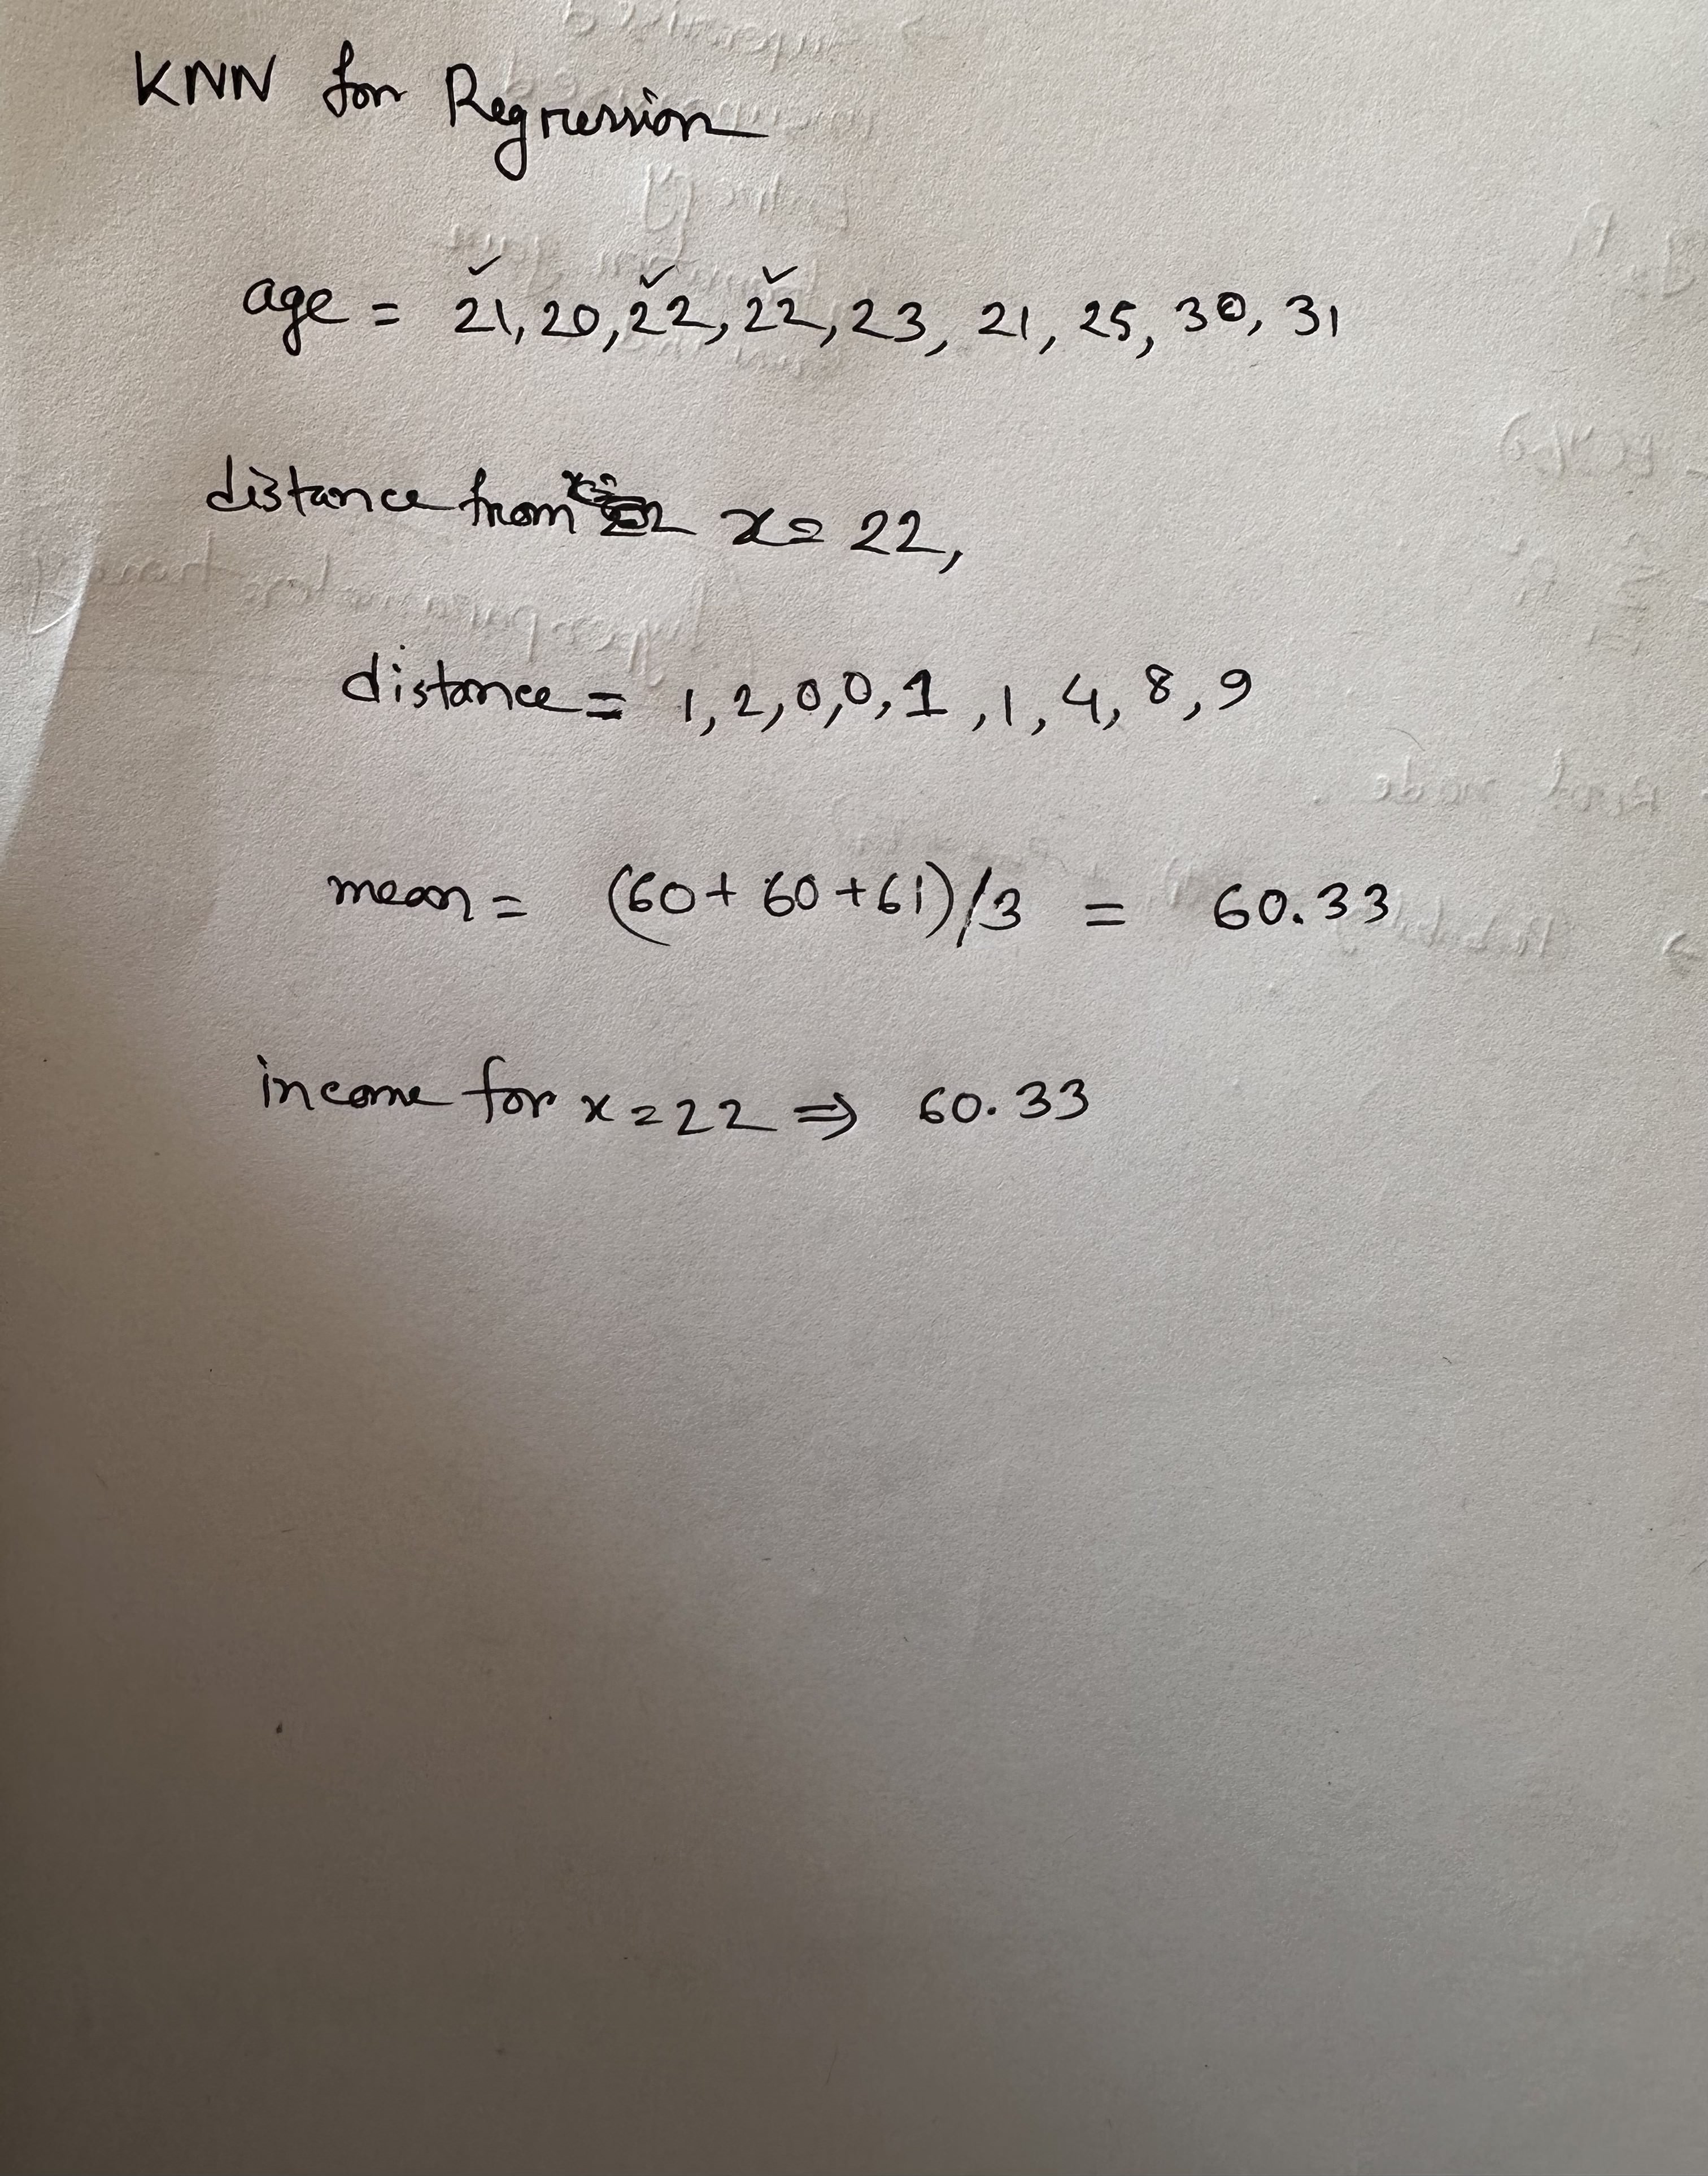 KNN for Regression
age = 21, 20, 22, 22, 23, 21, 25, 30, 31
distance from x = 22,
distance = 1, 2, 0, 0, 1, 1, 4, 8, 9
mean = (60 + 60 + 61)/3 = 60.33
income for x = 22 ⇒ 60.33